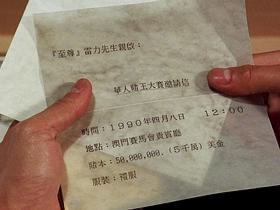 『至尊』雷力先生親啟：
華人賭王大賽邀請信
時間：1990年四月八日 12:00
地點：澳門賽馬會貴賓廳
賭本：50,000,000.（5千萬）美金
服裝：禮服